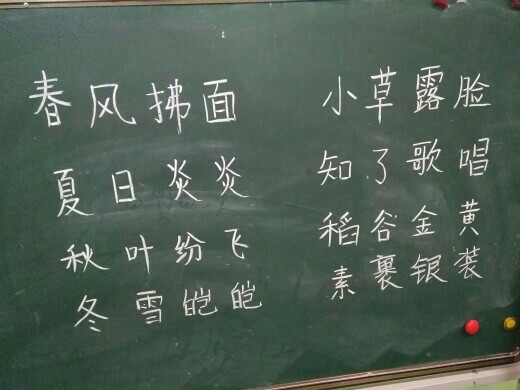 春风拂面 小草露脸
夏日炎炎 知了歌唱
秋叶纷飞 稻谷金黄
冬雪皑皑 素裹银装